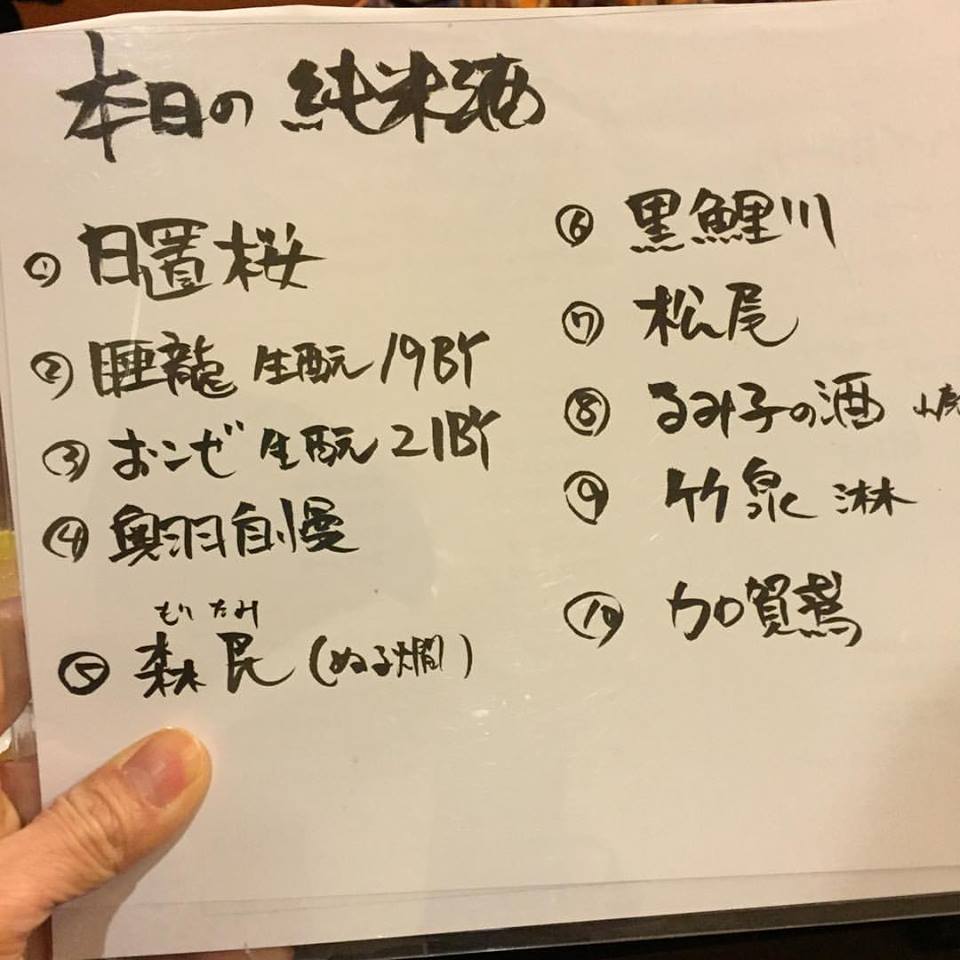 本日の 純米酒
① 日置桜
② 睡龍 生酛 19BY
③ おンぜ 生酛 21BY
④ 奥羽自慢
もり たみ
⑤ 森民 (ぬる燗)
⑥ 黒鯉川
⑦ 松尾
⑧ るみ子の酒
⑨ 竹泉 淋
⑩ 加賀鳶